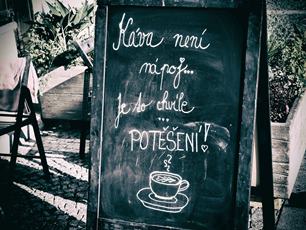 Káva není
nápoj...
Je to chvíle
...
POTĚŠENÍ!